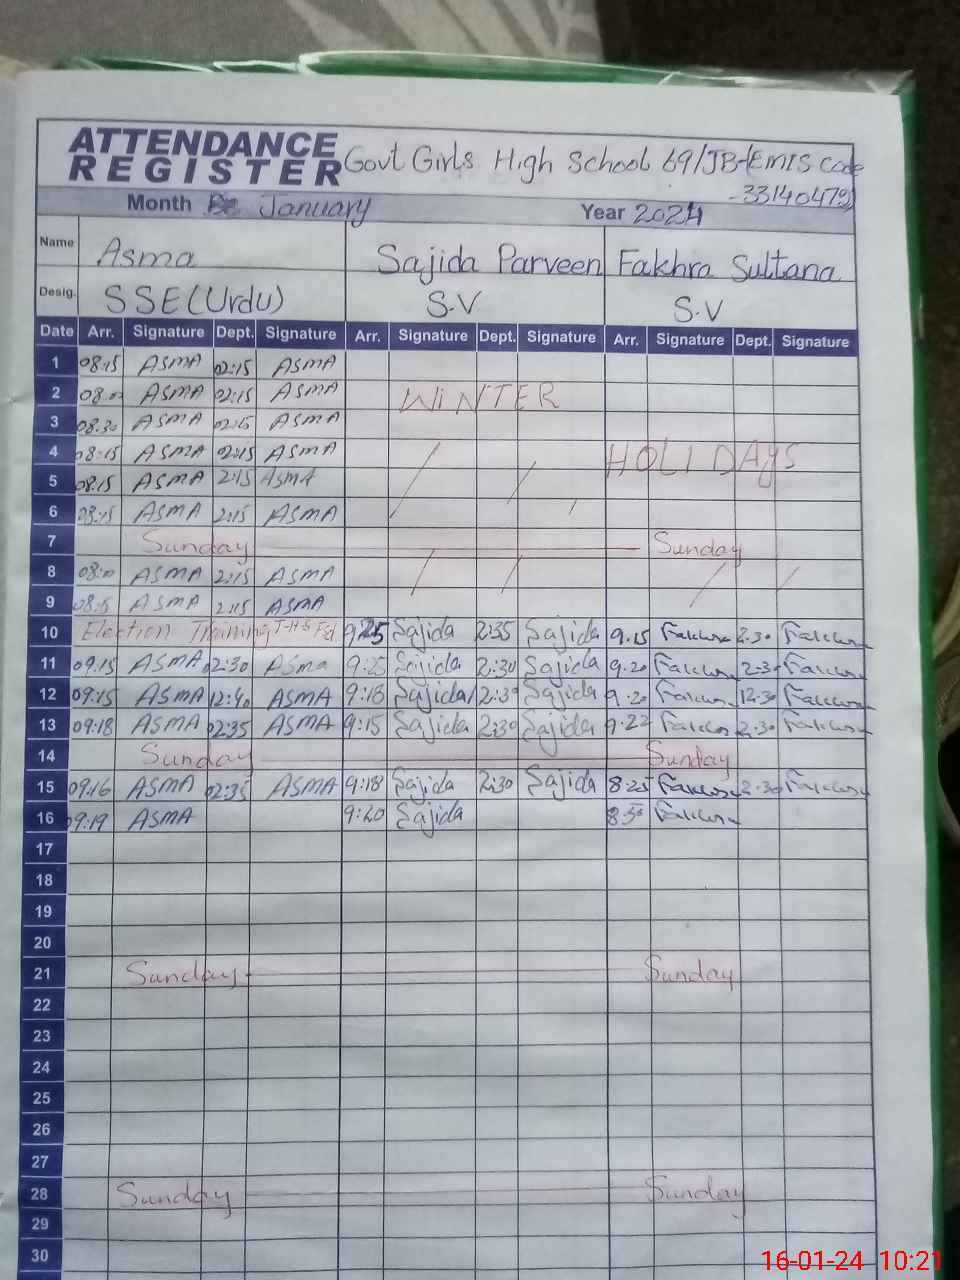 ATTENDANCE
REGISTER Govt Girls High School 69/JB-EMIS Code
-33140479
Month January Year 2024
Name Asma Sajida Parveen Fakhra Sultana
Desig. SSE (Urdu) S.V S.V
Date Arr. Signature Dept. Signature Arr. Signature Dept. Signature Arr. Signature Dept. Signature
1 08:15 ASMA 02:15 ASMA
2 ASMA 02:15 ASMA WINTER
3 08:30 ASMA 02:15 ASMA
4 08:15 ASMA 02:15 ASMA HOLIDAYS
5 08:15 ASMA 2:15 ASMA
6 08:15 ASMA 2:15 ASMA
7 Sunday Sunday
8 ASMA 2:15 ASMA
9 08:15 ASMA 2:15 ASMA
10 Election Training 9:25 Sajida 2:35 Sajida 9.15 2.30
11 09:15 ASMA 02:30 Asma 9:25 Sajida 2:30 Sajida 9.20 2.30
12 09:15 ASMA 12:40 ASMA 9:16 Sajida Sajida 9.20 12.30
13 09:18 ASMA 02:35 ASMA 9:15 Sajida 2:30 Sajida 9.22 2.30
14 Sunday Sunday
15 09:16 ASMA 02:35 ASMA 9:18 Sajida 2:30 Sajida 8.25 2.30
16 09:19 ASMA 9:20 Sajida
17
18
19
20
21 Sunday Sunday
22
23
24
25
26
27
28 Sunday Sunday
29
30
16-01-24 10:21